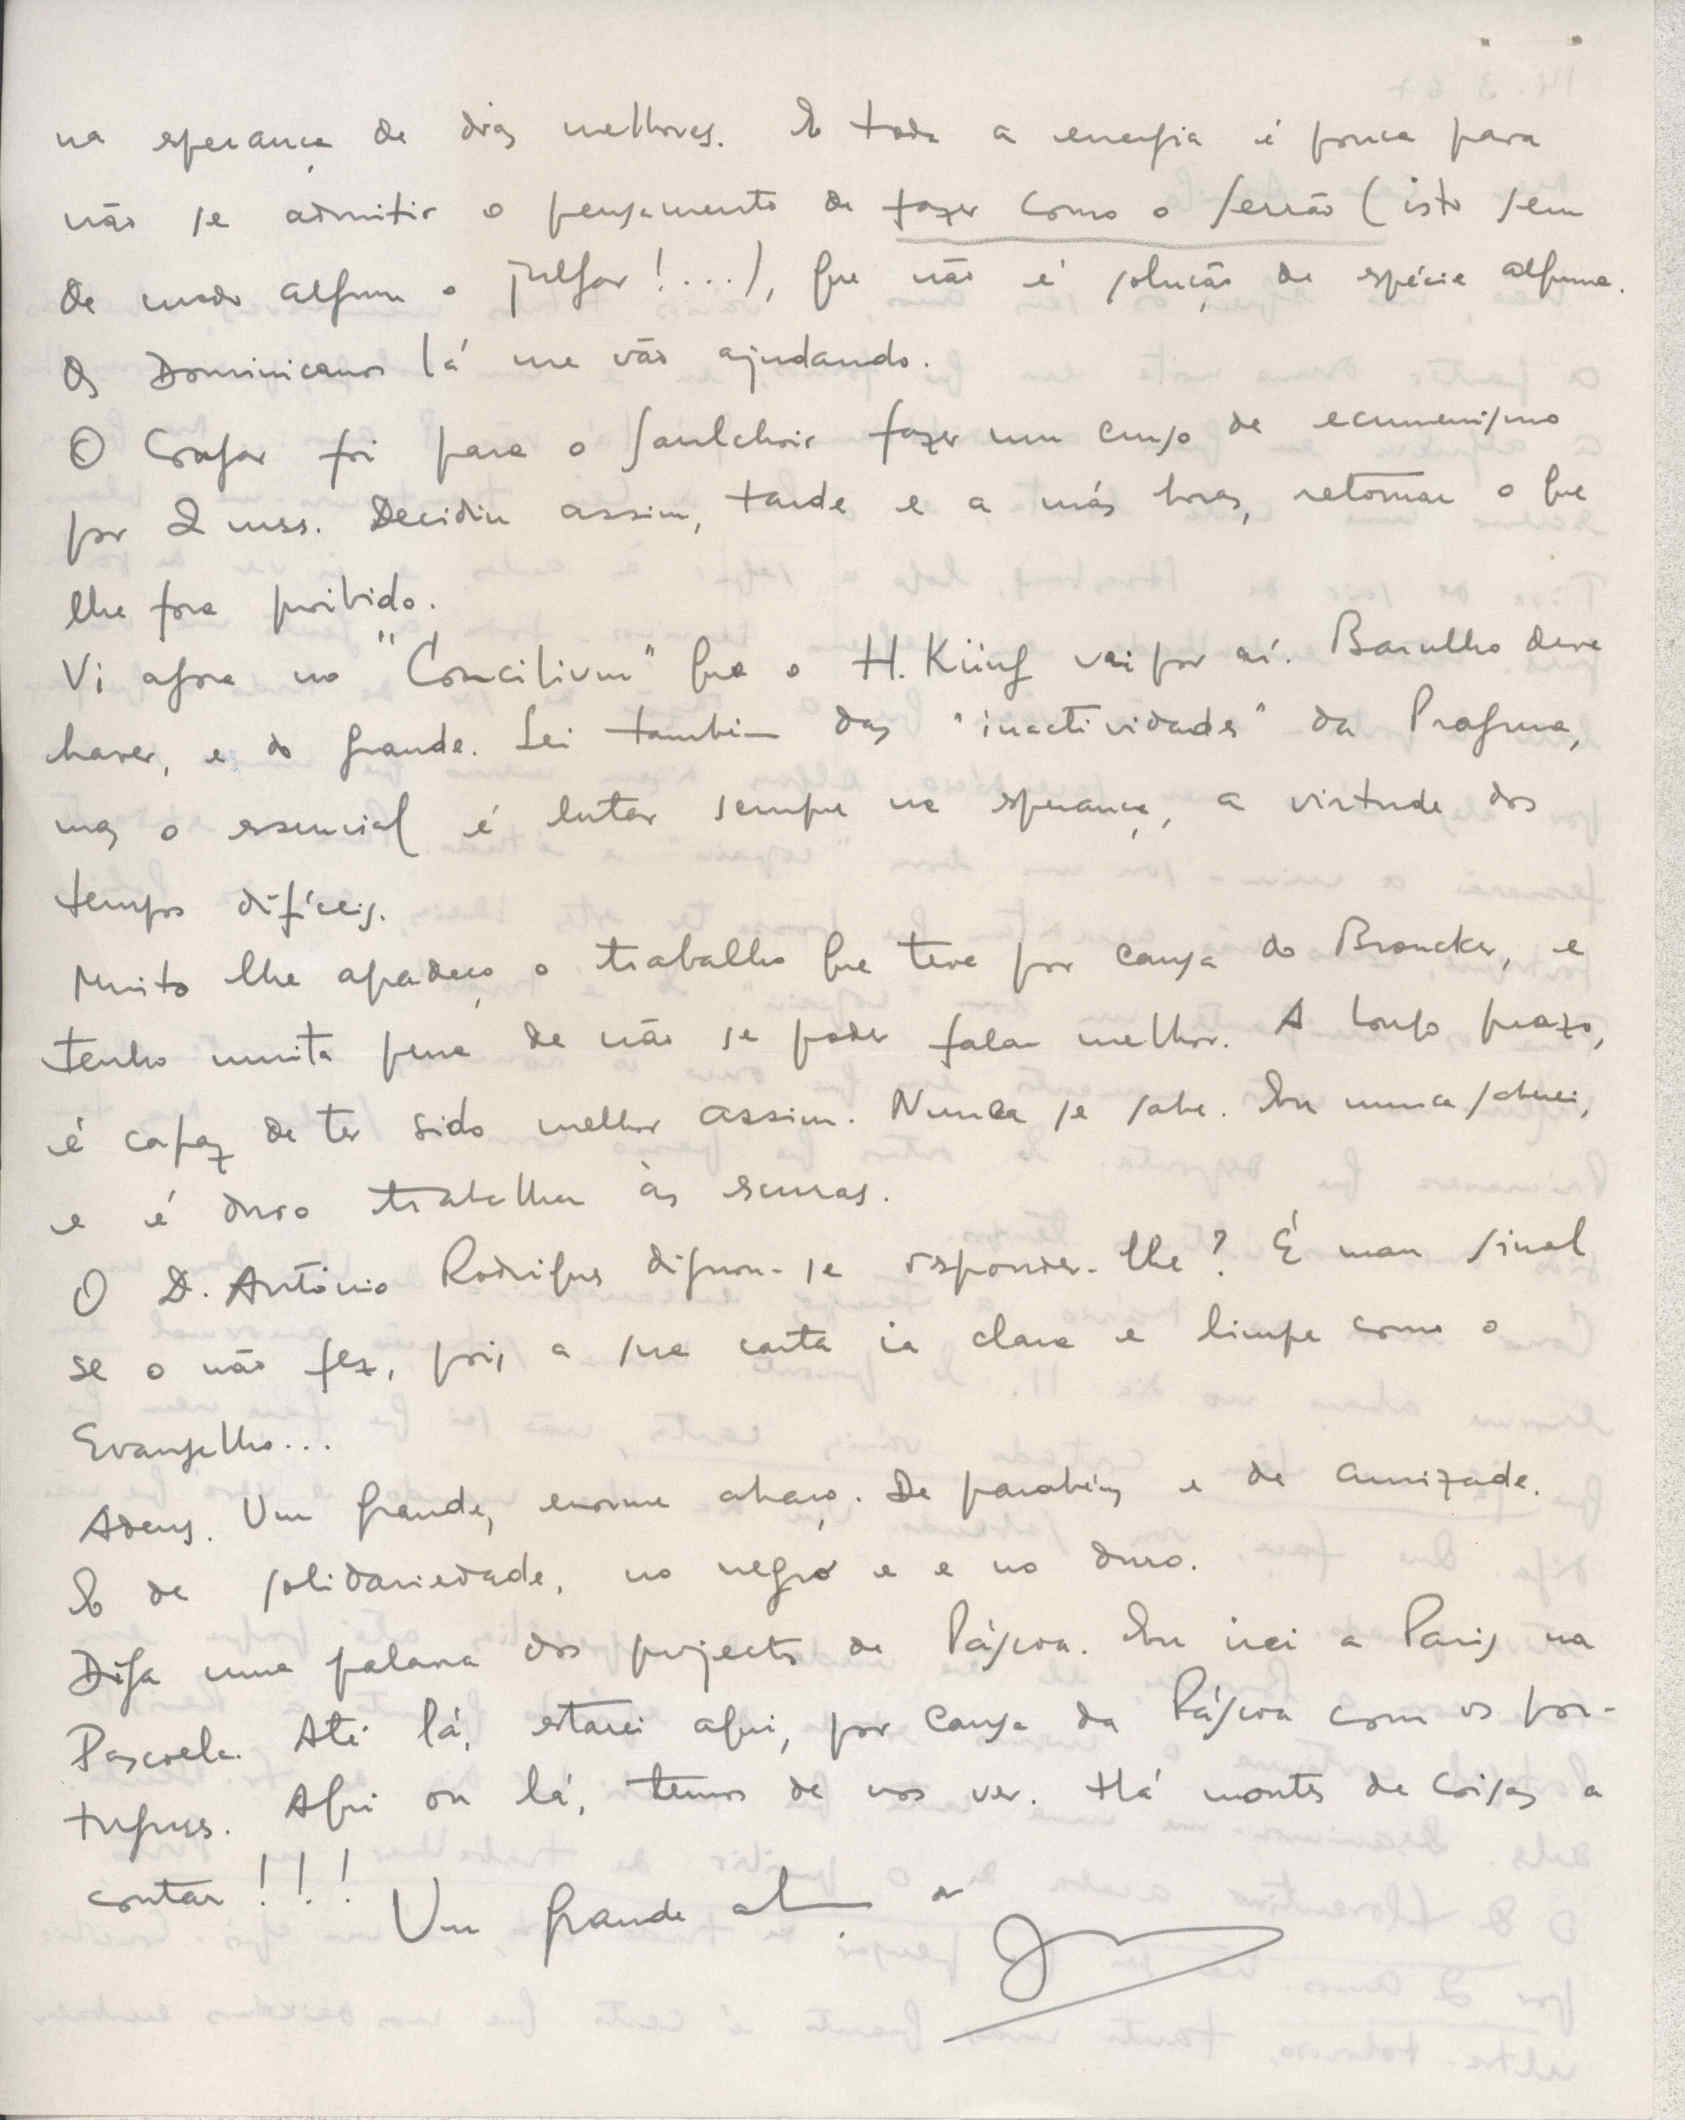 na esperança de dias melhores. E toda a energia é pouca para
não se admitir o pensamento de fazer como o Serrão (isto sem
de modo algum o julgar!...), que não é solução de espécie alguma.
Os Dominicanos lá me vão ajudando.
O Crespo foi para o Saulchoir fazer um curso de ecumenismo
por 2 meses. Decidiu assim, tarde e a más horas, retomar o que
lhe fora proibido.
Vi agora no "Concilium" que o H. Küng vai por aí. Barulho deve
haver, e do grande. Sei também das "inactividades" da Pragma,
mas o essencial é lutar sempre na esperança, a virtude dos
tempos difíceis.
Muito lhe agradeço o trabalho que teve por causa do Broucker, e
tenho muita pena de não se poder falar melhor. A longo prazo,
é capaz de ter sido melhor assim. Nunca se sabe. Eu nunca saberei,
e é duro trabalhar às escuras.
O D. António Rodrigues dignou-se responder-lhe? É mau sinal
se o não fez, pois a sua carta ia clara e limpa como o
Evangelho...
Adeus. Um grande, enorme abraço. De parabéns e de amizade.
E de solidariedade, no negro e e no duro.
Diga uma palavra dos projectos de Páscoa. Eu irei a Paris na
Pascoela. Até lá, estarei aqui, por causa da Páscoa com os por-
tugueses. Aqui ou lá, temos de nos ver. Há montes de coisas a
contar!!! Um grande abraço do